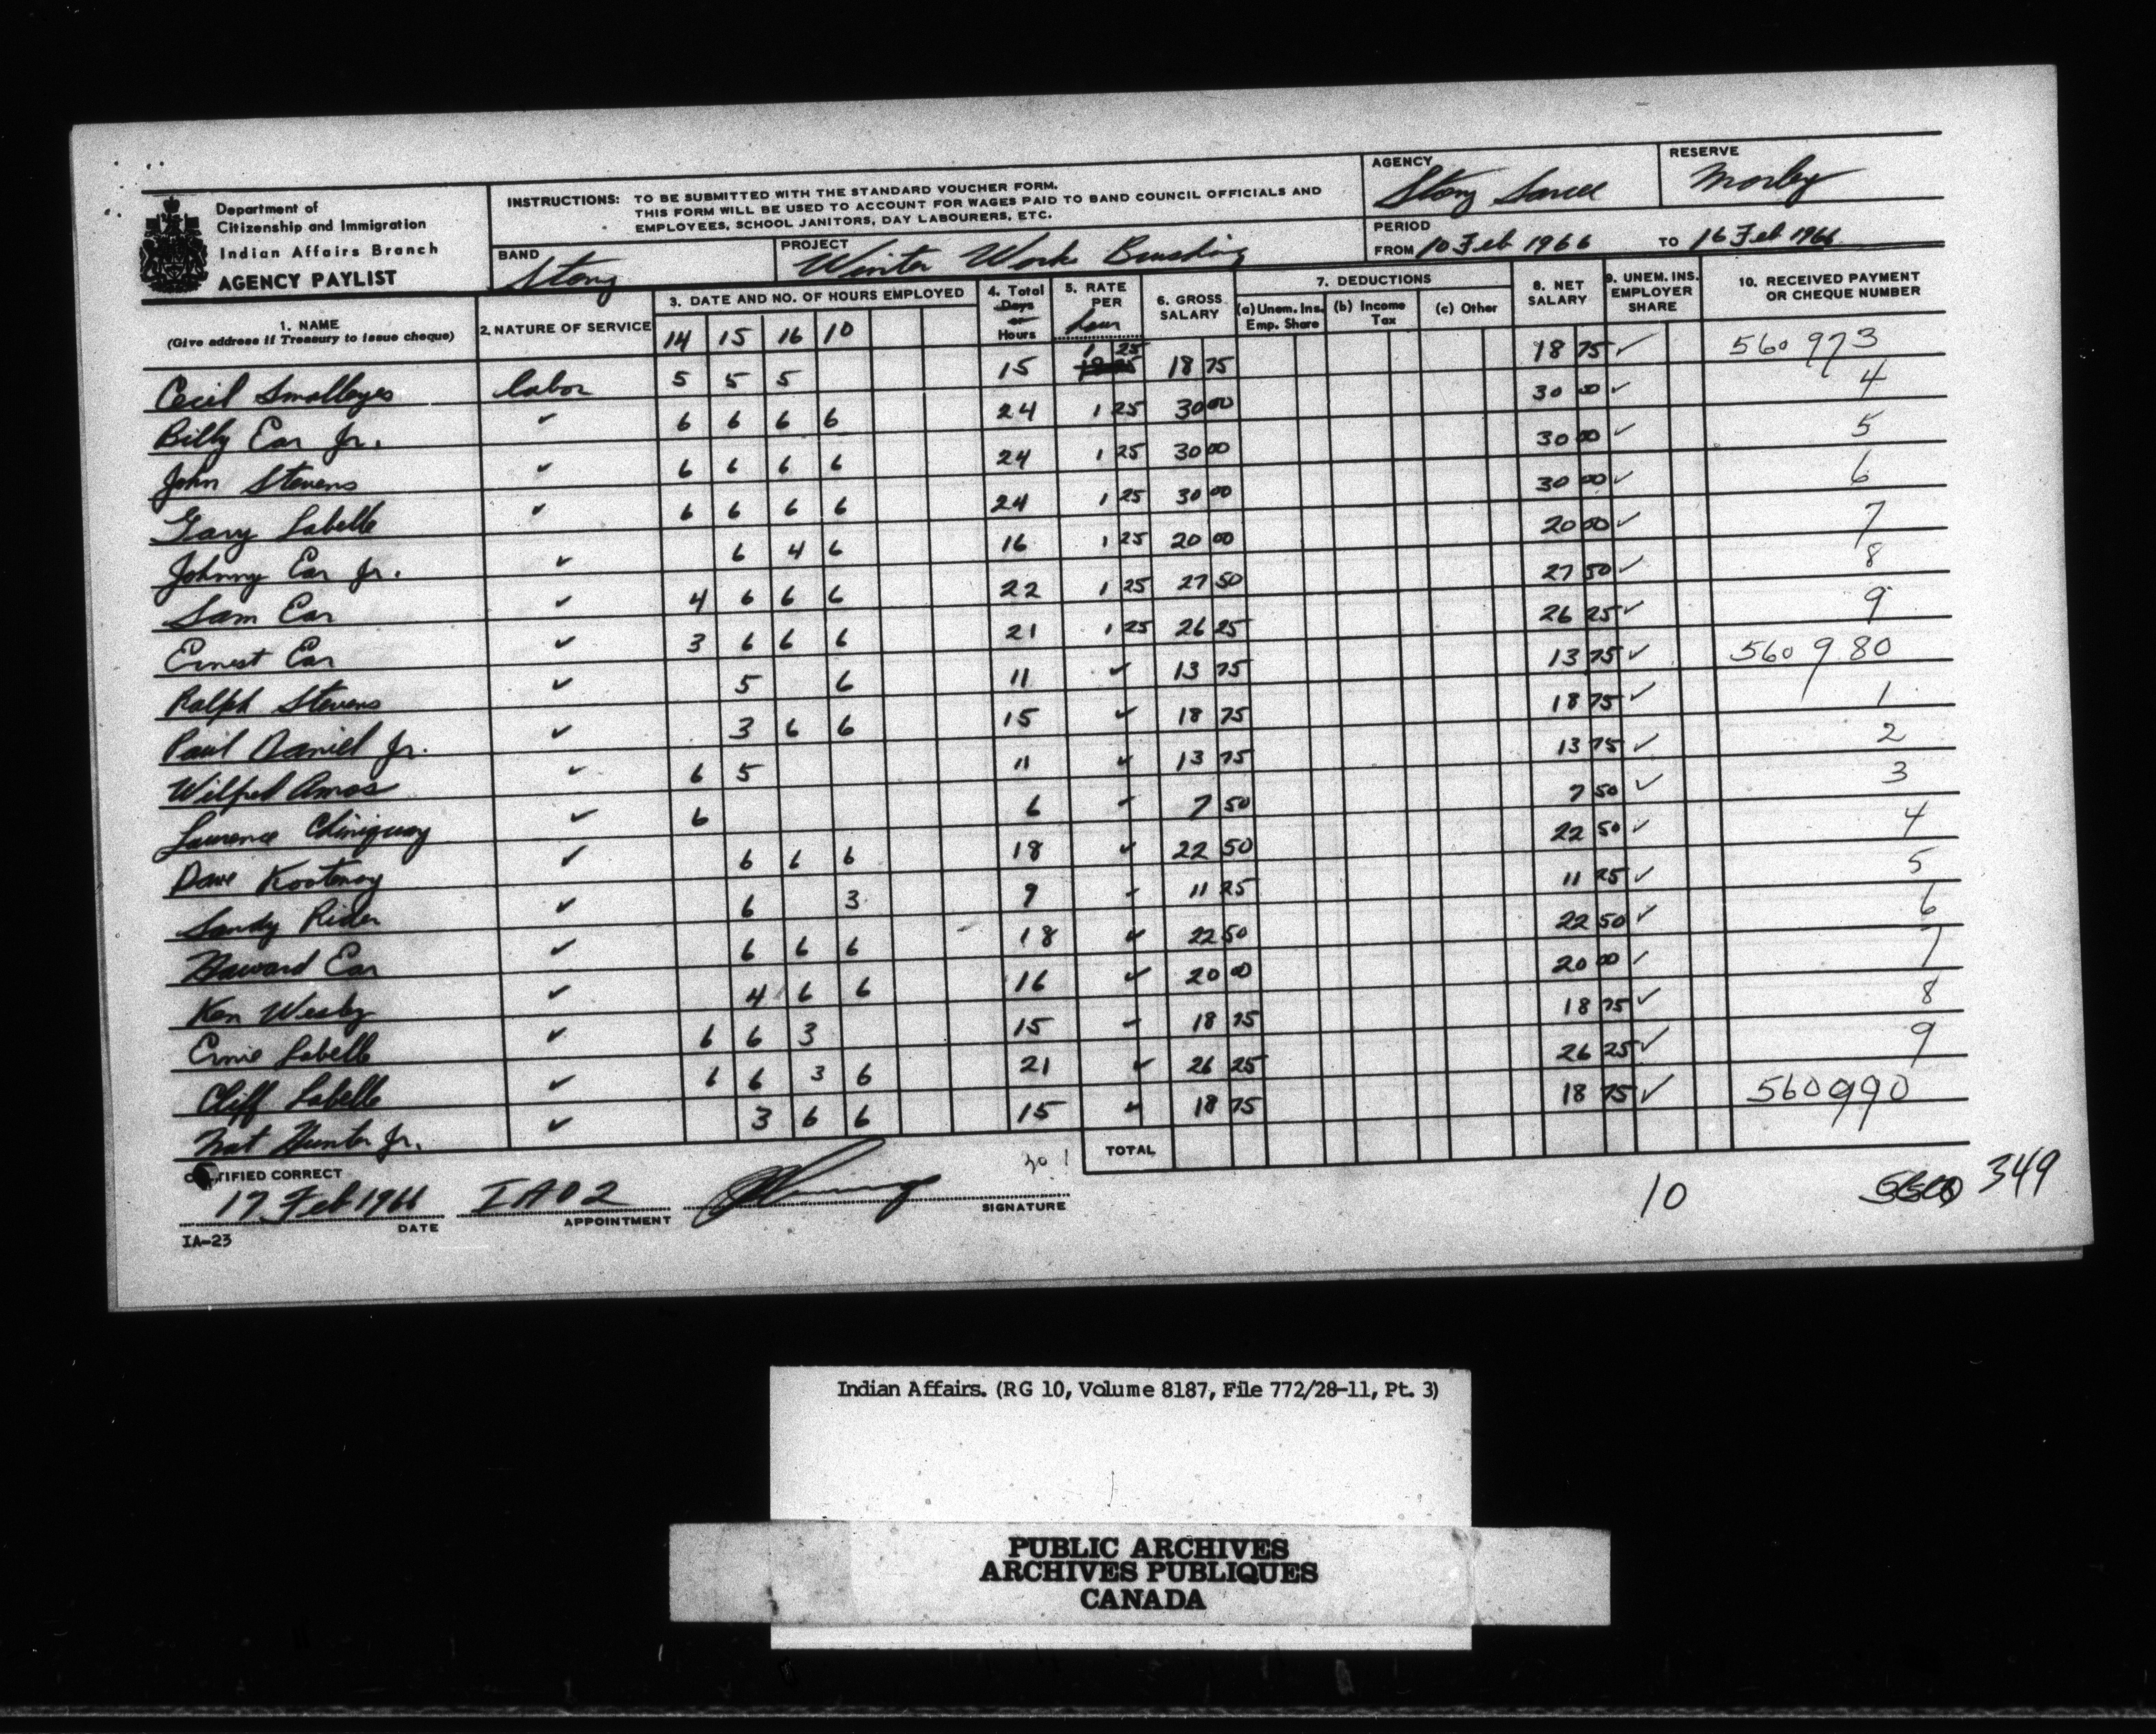 Department of
Citizenship and Immigration
Indian Affairs Branch
AGENCY PAYLIST
INSTRUCTIONS: TO BE SUBMITTED WITH THE STANDARD VOUCHER FORM.
THIS FORM WILL BE USED TO ACCOUNT FOR WAGES PAID TO BAND COUNCIL OFFICIALS AND
EMPLOYEES, SCHOOL JANITORS, DAY LABOURERS, ETC.
AGENCY
Stony Sarcee
RESERVE
Morley
BAND
Stony
PROJECT
Winter Works Brushing
PERIOD
FROM 10 Feb 1966 TO 16 Feb 1966
1. NAME
(Give address if Treasury to issue cheque)
2. NATURE OF SERVICE
3. DATE AND NO. OF HOURS EMPLOYED
14 15 16 10
4. Total
Days
or
Hours
5. RATE
PER
hour
6. GROSS
SALARY
7. DEDUCTIONS
(a) Unem. Ins. Emp. Share
(b) Income Tax
(c) Other
8. NET
SALARY
9. UNEM. INS.
EMPLOYER
SHARE
10. RECEIVED PAYMENT
OR CHEQUE NUMBER
Cecil Smalleyes labor 5 5 5 15 1 25 18 75 18 75 ✓ 560973
Billy Ear Jr. ✓ 6 6 6 6 24 1 25 30 00 30 00 ✓ 4
John Stevens ✓ 6 6 6 6 24 1 25 30 00 30 00 ✓ 5
Gary Labelle ✓ 6 6 6 6 24 1 25 30 00 30 00 ✓ 6
Johnny Ear Jr. ✓ 6 4 6 16 1 25 20 00 20 00 ✓ 7
Sam Ear ✓ 4 6 6 6 22 1 25 27 50 27 50 ✓ 8
Ernest Ear ✓ 3 6 6 6 21 1 25 26 25 26 25 ✓ 9
Ralph Stevens ✓ 5 6 11 ✓ 13 75 13 75 ✓ 560980
Paul Daniel Jr. ✓ 3 6 6 15 ✓ 18 75 18 75 ✓ 1
Wilfred Amos ✓ 6 5 11 ✓ 13 75 13 75 ✓ 2
Laurence Chiniquay ✓ 6 6 ✓ 7 50 7 50 ✓ 3
Dave Kootenay ✓ 6 6 6 18 ✓ 22 50 22 50 ✓ 4
Sandy Rider ✓ 6 3 9 ✓ 11 25 11 25 ✓ 5
Haward Ear ✓ 6 6 6 18 ✓ 22 50 22 50 ✓ 6
Ken Wesley ✓ 4 6 6 16 ✓ 20 00 20 00 ✓ 7
Ernie Labelle ✓ 6 6 3 15 ✓ 18 75 18 75 ✓ 8
Cliff Labelle ✓ 6 6 3 6 21 ✓ 26 25 26 25 ✓ 9
Nat Hunter Jr. ✓ 3 6 6 15 ✓ 18 75 18 75 ✓ 560990
TOTAL
CERTIFIED CORRECT
301
17 Feb 1966 IA02
DATE APPOINTMENT SIGNATURE
10 349
IA-23
Indian Affairs. (RG 10, Volume 8187, File 772/28-11, Pt. 3)
PUBLIC ARCHIVES
ARCHIVES PUBLIQUES
CANADA